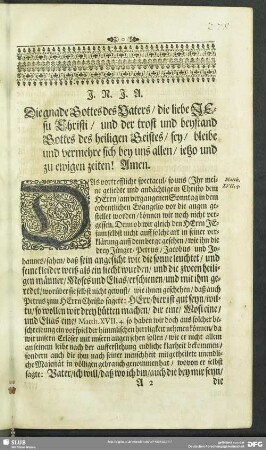 J. N. J. A.
Die gnade Gottes des Vaters / die liebe JE-
su Christi / und der trost und beystand
Gottes des heiligen Geistes / sey / bleibe
und vermehre sich bey uns allen / ietzo und
zu ewigen zeiten! Amen.
DAs vortreffliche spectacul / so uns / Ihr mei-
ne geliebte und andächtige in Christo dem
HErrn / am vergangenen Sonntag in dem
ordentlichen Evangelio vor die augen ge-
stellet worden / können wir noch nicht ver-
gessen. Denn ob wir gleich den HErrn JE-
sum selbst nicht auff solche art in seiner ver-
klärung auff dem berge gesehen / wie ihn die
drey Jünger / Petrus / Jacobus und Jo-
hannes / sahen / daß sein angesicht wie die sonne leuchtet / und
seine kleider weiß als ein liecht wurden / und die zween heili-
gen männer / Moses und Elias / erschienen / und mit ihm ge-
redet / worüber sie selbst nicht gewust / wie ihnen geschehen / daß auch
Petrus zum HErrn Christo sagete: HErr / hier ist gut seyn / wilt-
tu / so wollen wir drey hütten machen / dir eine / Mosi eine /
und Elias eine / Matth. XVII, 4. so haben wir doch aus solcher be-
schreibung ein vorspiel der himmlischen herrligkeit nehmen können / da
wir unsern Erlöser mit unsern augen sehen sollen / wie er nicht allein
an seinem leibe nach der aufferstehung endliche klarheit bekommen /
sondern auch die ihm nach seiner menschheit mitgetheilete unendli-
che Majestät in völligen gebrauch genommen hat / wovon er selbst
sagte: Vater / ich will / daß wo ich bin / auch die bey mir seyn /
A 2 die
Matth.
XVII. 4.
SLUB